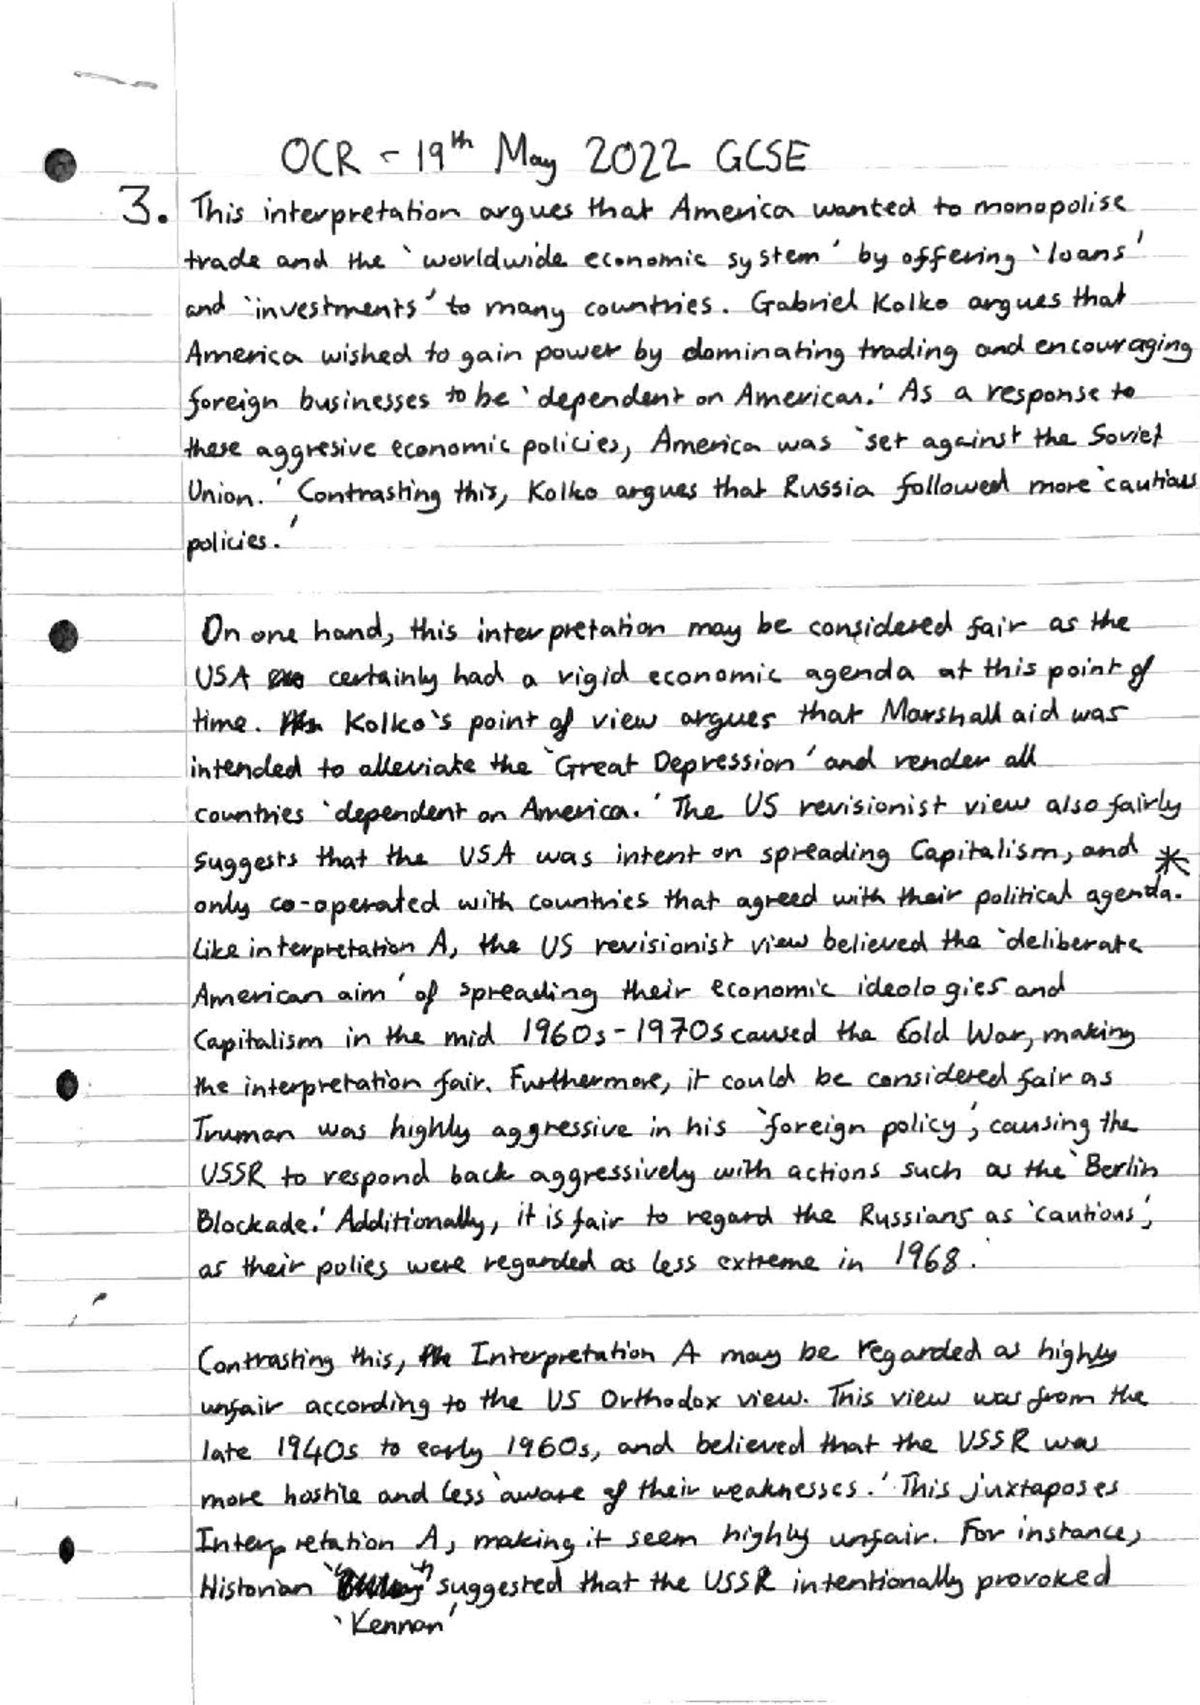 OCR - 19th May 2022 GCSE
3. This interpretation argues that America wanted to monopolise
trade and the 'worldwide economic system' by offering 'loans'
and 'investments' to many countries. Gabriel Kolko argues that
America wished to gain power by dominating trading and encouraging
foreign businesses to be 'dependent on American.' As a response to
these aggresive economic policies, America was 'set against the Soviet
Union.' Contrasting this, Kolko argues that Russia followed more 'cautious
policies.'
On one hand, this interpretation may be considered fair as the
USA certainly had a rigid economic agenda at this point of
time. Kolko's point of view argues that Marshall aid was
intended to alleviate the 'Great Depression' and render all
countries 'dependent on America.' The US revisionist view also fairly
suggests that the USA was intent on spreading Capitalism, and *
only co-operated with countries that agreed with their political agenda.
Like interpretation A, the US revisionist view believed the 'deliberate
American aim' of spreading their economic ideologies and
Capitalism in the mid 1960s-1970s caused the Cold War, making
the interpretation fair. Furthermore, it could be considered fair as
Truman was highly aggressive in his 'foreign policy', causing the
USSR to respond back aggressively with actions such as the 'Berlin
Blockade.' Additionally, it is fair to regard the Russians as 'cautious',
as their polies were regarded as less extreme in 1968.
Contrasting this, Interpretation A may be regarded as highly
unfair according to the US Orthodox view. This view was from the
late 1940s to early 1960s, and believed that the USSR was
more hostile and less 'aware of their weaknesses.' This juxtaposes
Interpretation A, making it seem highly unfair. For instance,
Historian suggested that the USSR intentionally provoked
'Kennan'